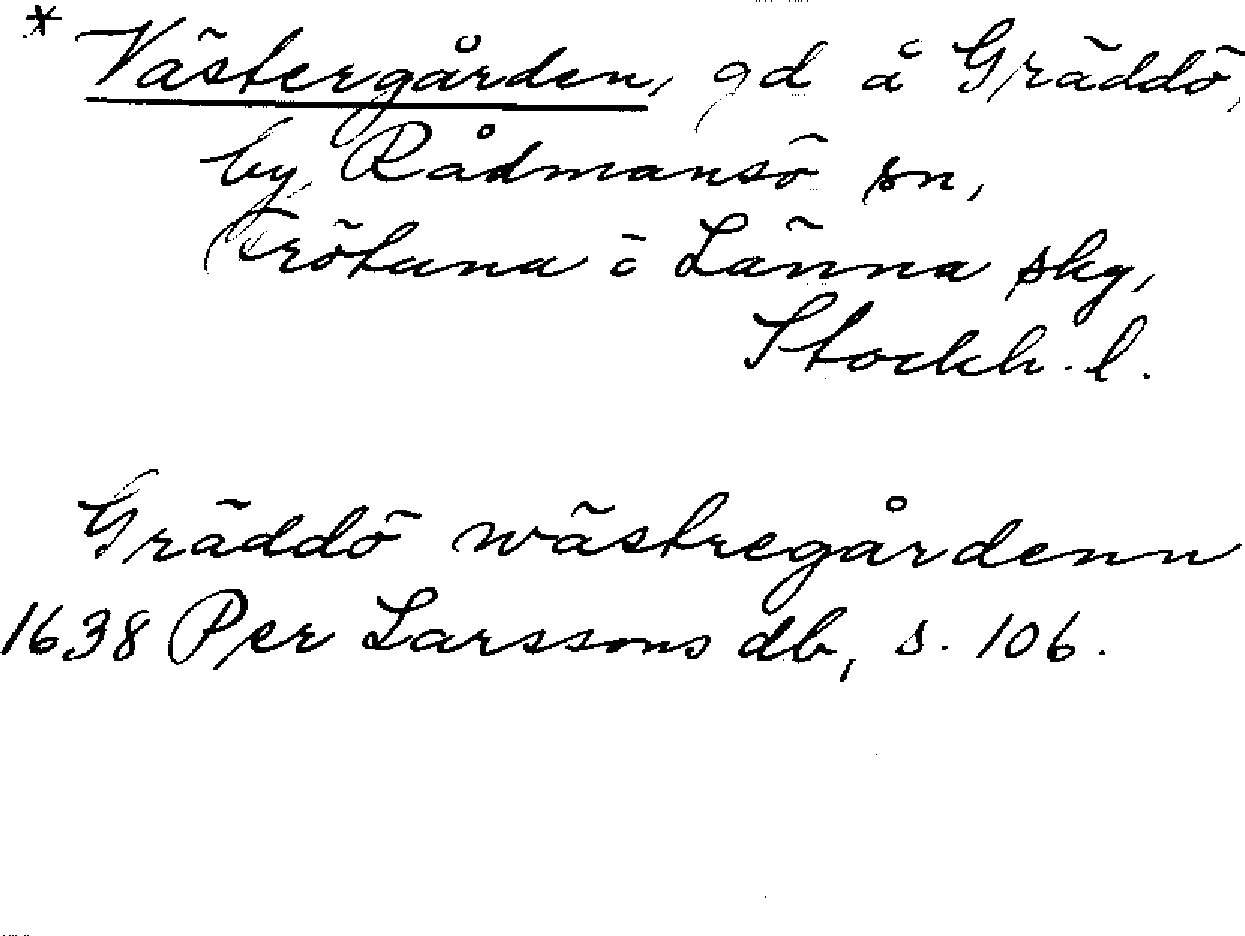 * Västergården, gd å Gräddö,
by, Rådmansö sn,
Frötuna ö Länna skg,
Stockh. l.
Gräddö wästregårdenn
1638 Per Larssons db, s. 106.